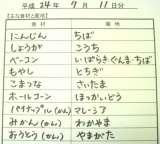 平成 24年 7月 11日分
【主な食材と産地】
食材 産地
にんじん ちば
しょうが こうち
ベーコン いばらき ぐんま ちば
もやし とちぎ
こまつな さいたま
ホールコーン ほっかいどう
パイナップル(かん) マレーシア
みかん(かん) わかやま
おうとう(かん) やまがた